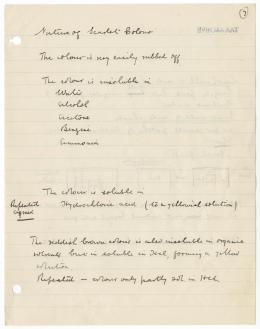 (3)
Nature of Scarlet Colour
The colour is very easily rubbed off
The colour is insoluble in
Water
Alcohol
Acetone
Benzene
Ammonia
The colour is soluble in
Hydrochloric acid (to a yellowish solution)
Repeated
The reddish brown colour is also insoluble in organic
solvents but is soluble in HCl, forming a yellow
solution
Repeated — colour only partly sol. in HCl.